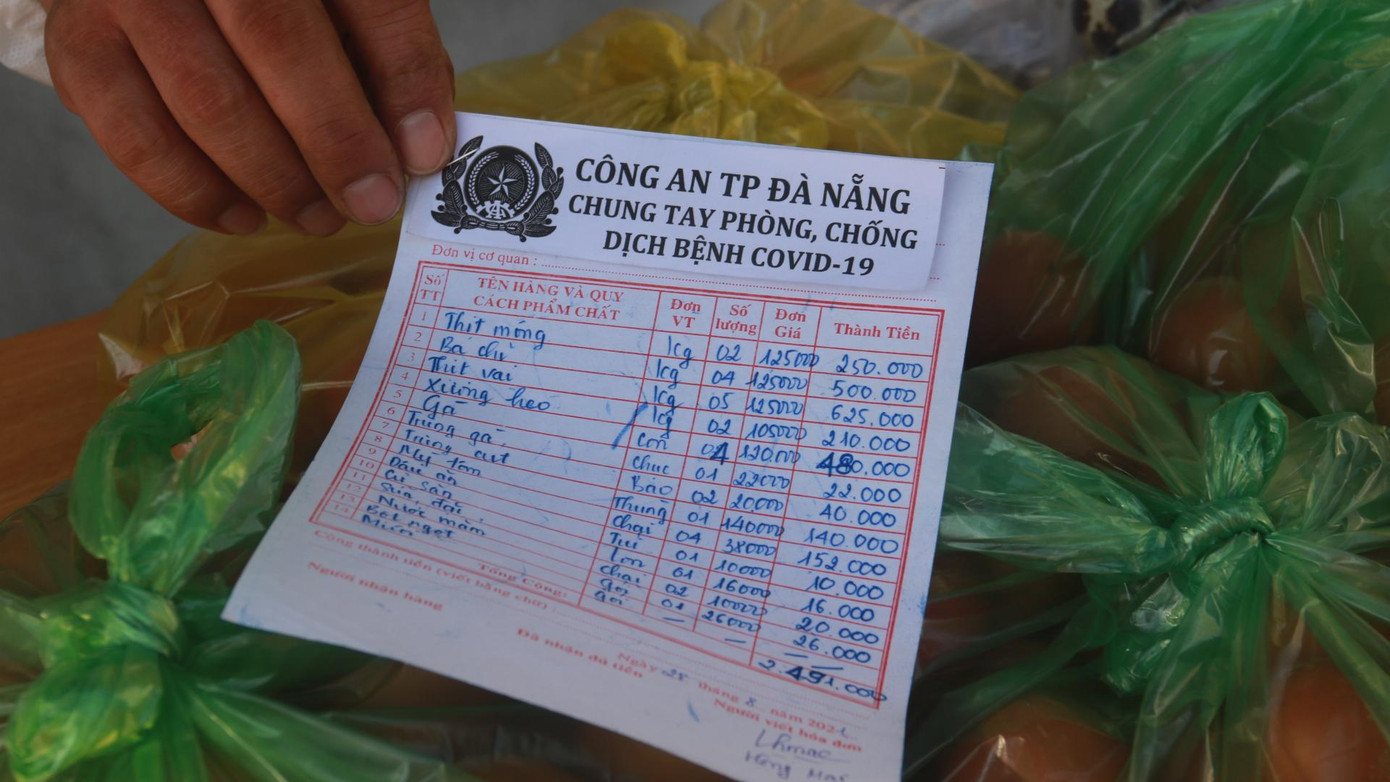 CÔNG AN TP ĐÀ NẴNG
CHUNG TAY PHÒNG, CHỐNG
DỊCH BỆNH COVID-19
Đơn vị cơ quan :
Số TT TÊN HÀNG VÀ QUY CÁCH PHẨM CHẤT Đơn VT Số lượng Đơn Giá Thành Tiền
1 Thịt mông kg 02 125000 250.000
2 Ba chỉ kg 04 125000 500.000
3 Thịt vai kg 05 125000 625.000
4 Xương heo kg 02 105000 210.000
5 Gà Con 04 120000 480.000
6 Trứng gà Chục 01 22000 22.000
7 Trứng cút Bao 02 20000 40.000
8 Mỳ tôm Thùng 01 140000 140.000
9 Dầu ăn Chai 04 38000 152.000
10 Củ sắn Túi 01 10000 10.000
11 Sữa đặc Lon 01 16000 16.000
12 Nước mắm Chai 02 10000 20.000
13 Bột ngọt Gói 01 26000 26.000
14 Miến Gói — — —
Tổng Cộng: 2.491.000
Cộng thành tiền (viết bằng chữ) :
Ngày 28 tháng 8 năm 2021
Người nhận hàng Đã nhận đủ tiền Người viết hóa đơn